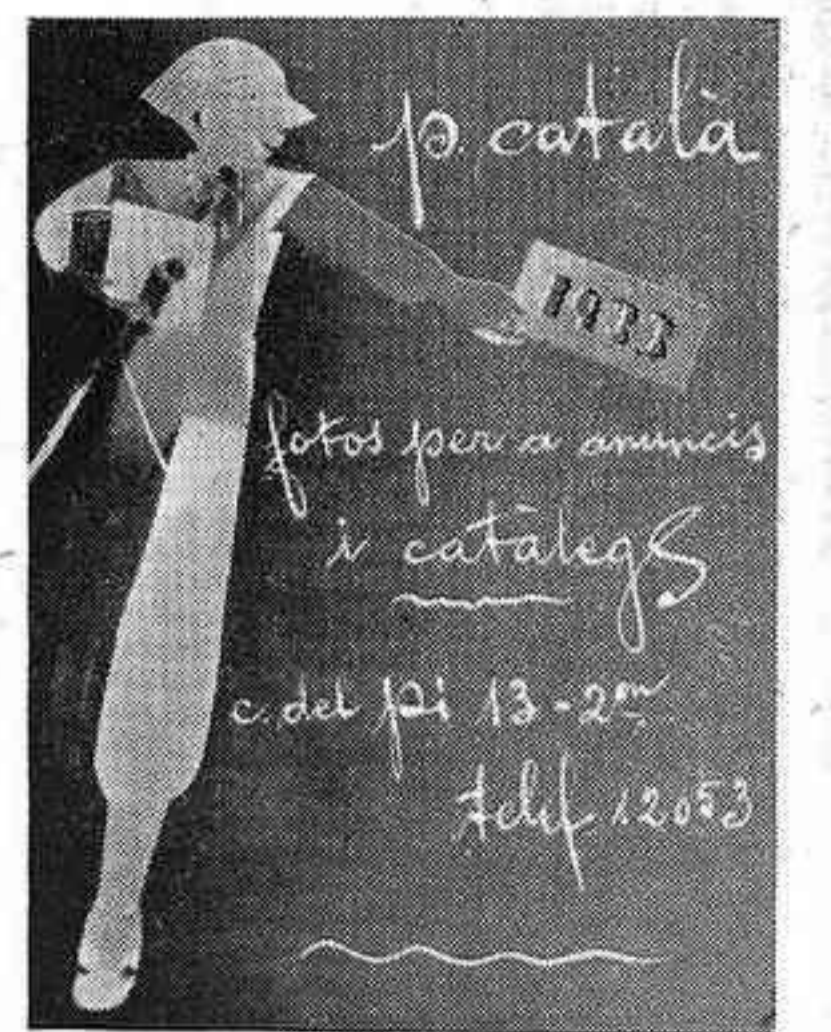 p. català
1933
fotos per a anuncis
i catàlegs
c. del pi 13 - 2on
Telef 12053